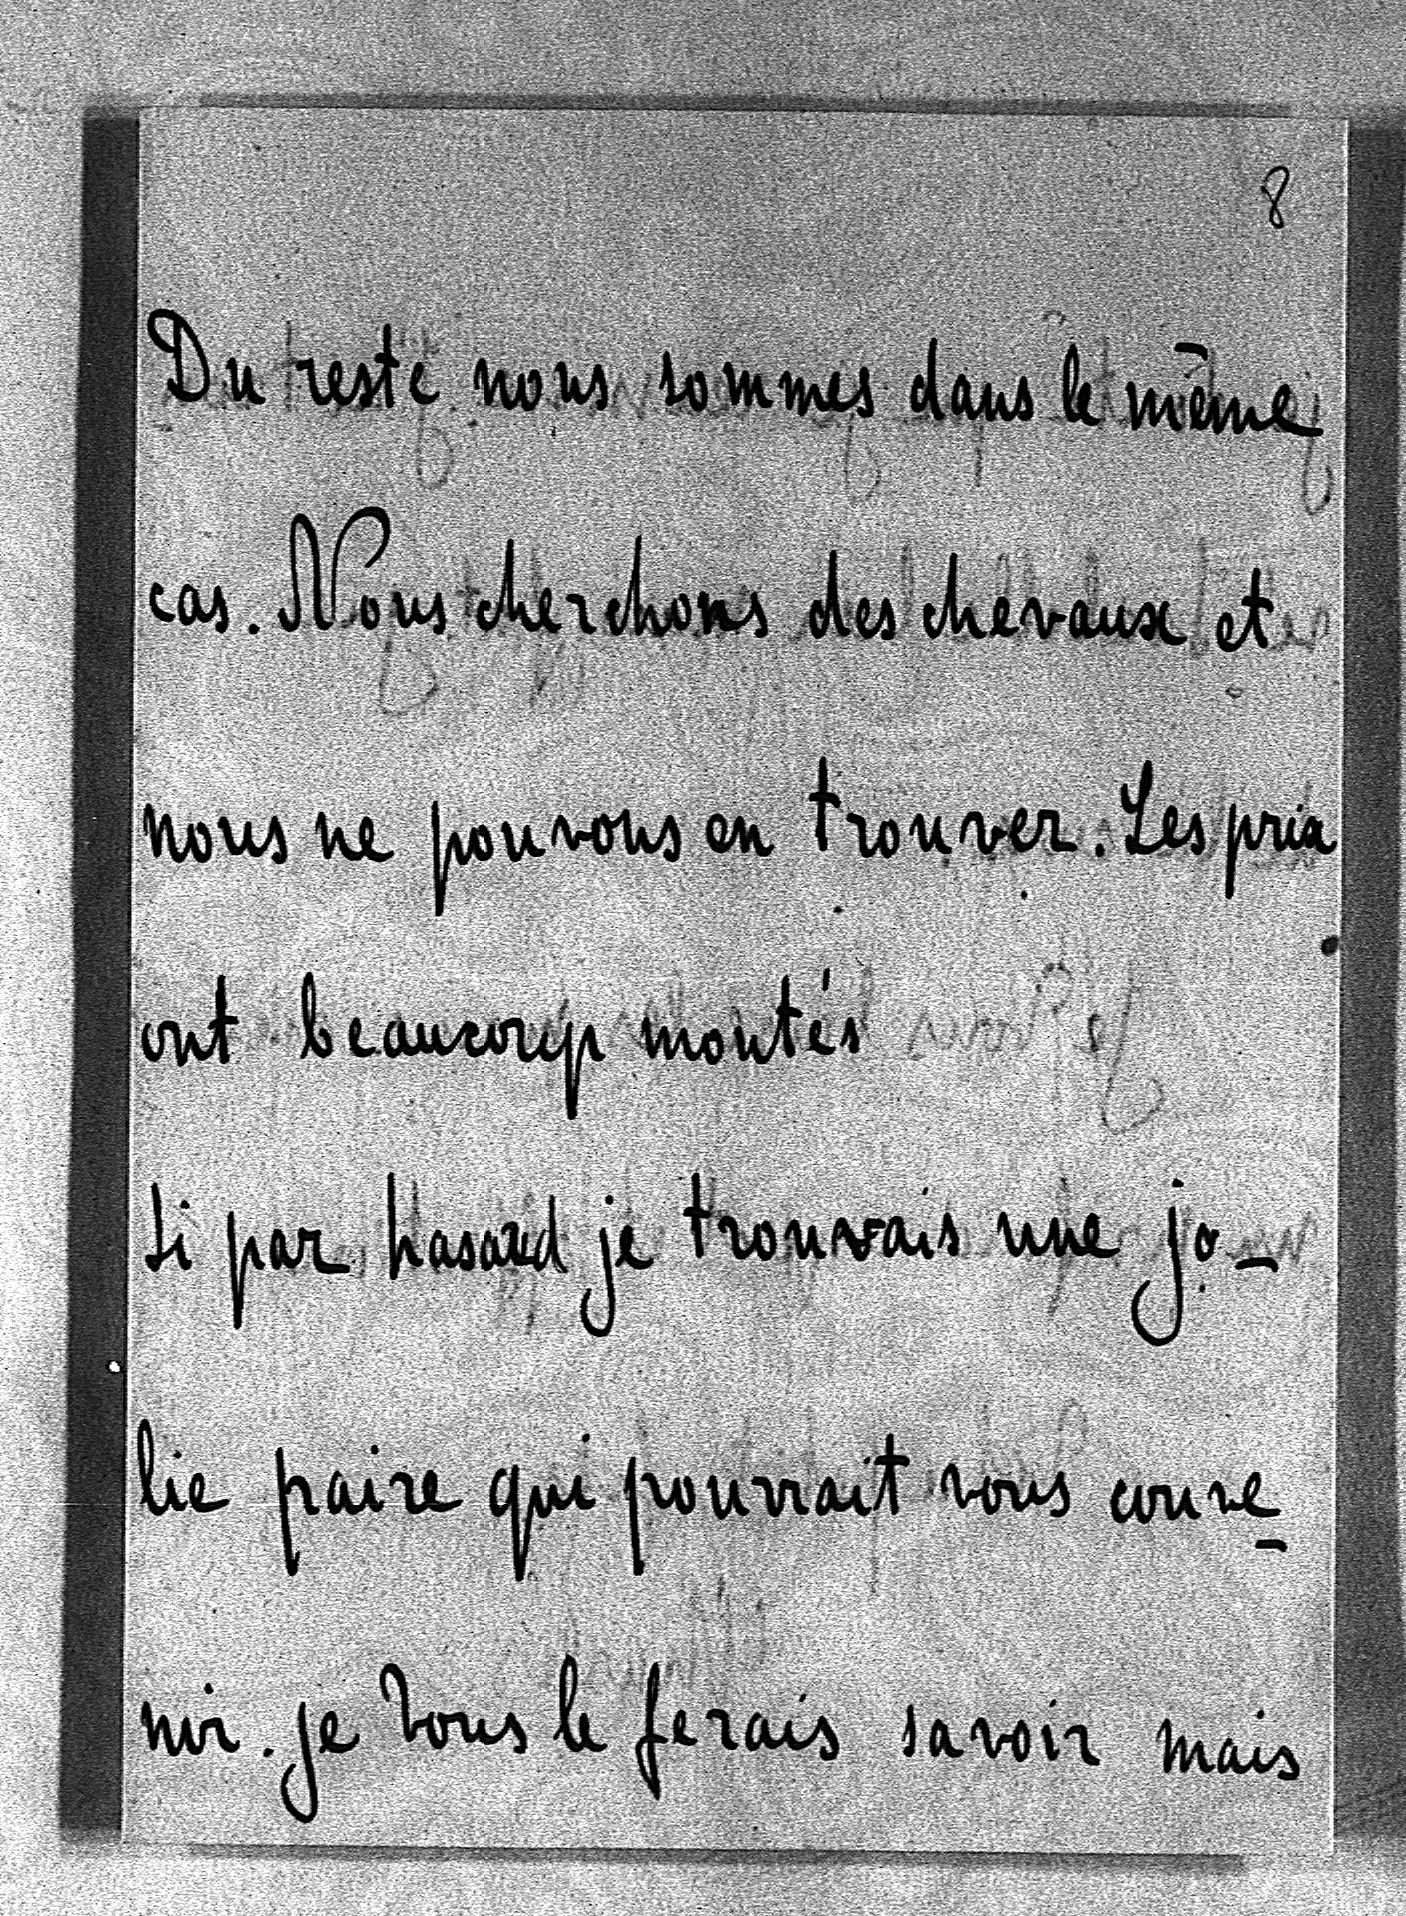 8
Du reste nous sommes dans le même
cas. Nous cherchons des chevaux et
nous ne pouvons en trouver. Les prix
ont beaucoup montés
si par hasard je trouvais une jo-
lie paire qui pourrait vous conve-
nir. je vous le ferais savoir mais